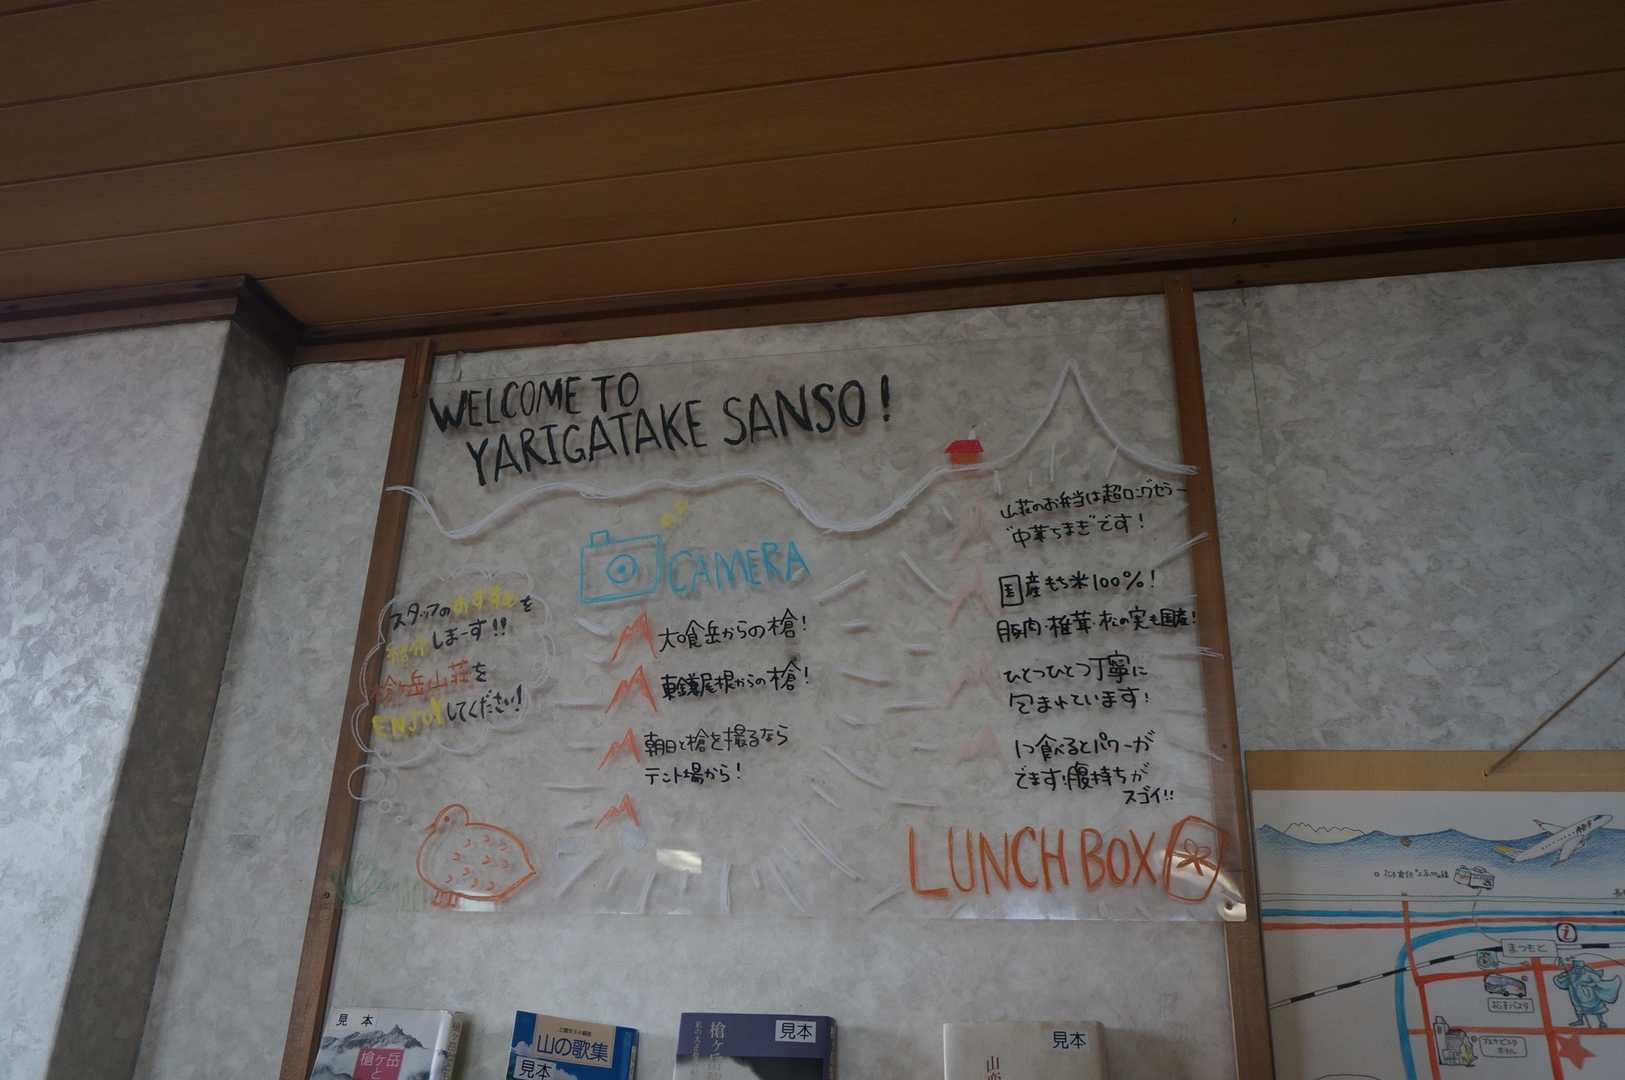 WELCOME TO
YARIGATAKE SANSO!
スタッフのおすすめを
紹介しまーす!!
槍ヶ岳山荘を
ENJOYしてください!
CAMERA
大喰岳からの槍!
東鎌尾根からの槍!
朝日と槍を撮るなら
テント場から!
山荘のお弁当は超ロングセラー
"中華ちまき"です!
国産もち米100%!
豚肉・椎茸・松の実も国産!
ひとつひとつ丁寧に
包まれています!
1つ食べるとパワーが
でます!腹持ちが
スゴイ!!
LUNCH BOX
見本
槍ヶ岳
と
山の歌集
見本
槍ヶ岳
見本
見本
山恋
i
まつもと
松本バスタ